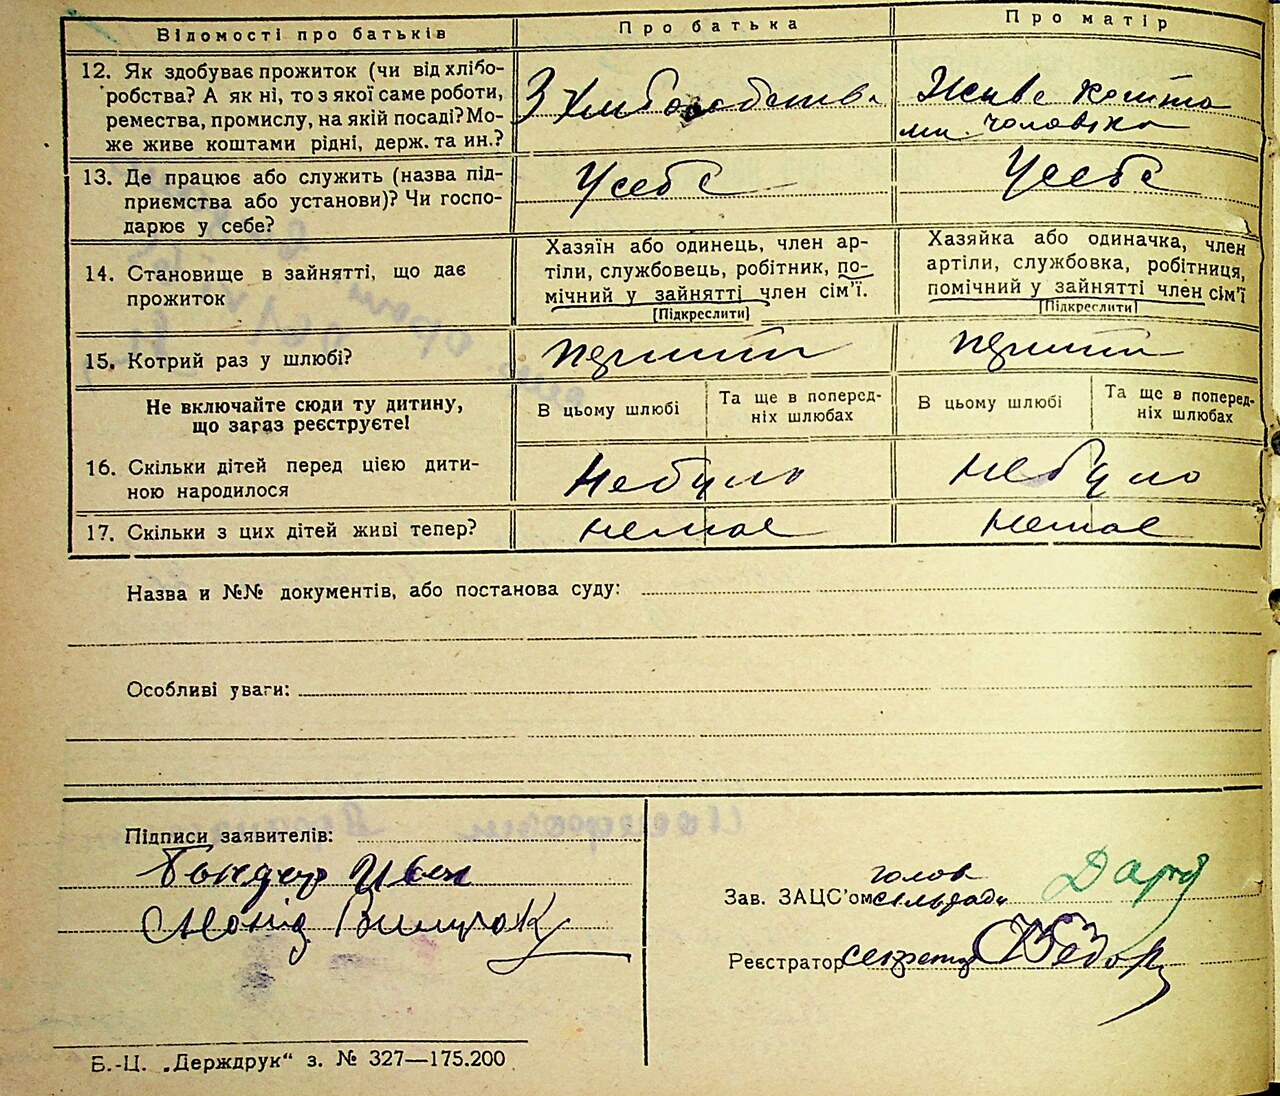 Відомості про батьків
Про батька
Про матір
12. Як здобуває прожиток (чи від хлібо-
робства? А як ні, то з якої саме роботи,
ремества, промислу, на якій посаді? Мо-
же живе коштами рідні, держ. та ин.?
З хліборобства
Живе кошта
ми чоловіка
13. Де працює або служить (назва під-
приємства або установи)? Чи госпо-
дарює у себе?
Усебе
Усебе
14. Становище в зайнятті, що дає
прожиток
Хазяїн або одинець, член ар-
тіли, службовець, робітник, по-
мічний у зайнятті член сім’ї.
[Підкреслити]
Хазяйка або одиначка, член
артіли, службовка, робітниця,
помічний у зайнятті член сім’ї
[Підкреслити]
15. Котрий раз у шлюбі?
перший
перший
Не включайте сюди ту дитину,
що загаз реєструєте!
В цьому шлюбі
Та ще в поперед-
ніх шлюбах
В цьому шлюбі
Та ще в поперед-
ніх шлюбах
16. Скільки дітей перед цією дити-
ною народилося
Небуло
Небуло
17. Скільки з цих дітей живі тепер?
немає
немає
Назва и №№ документів, або постанова суду:
Особливі уваги:
Підписи заявителів:
Бондар Іван
Зав. ЗАЦС’ом
голов
сільради
Реєстратор секретар
Б.-Ц. „Держдрук“ з. № 327—175.200